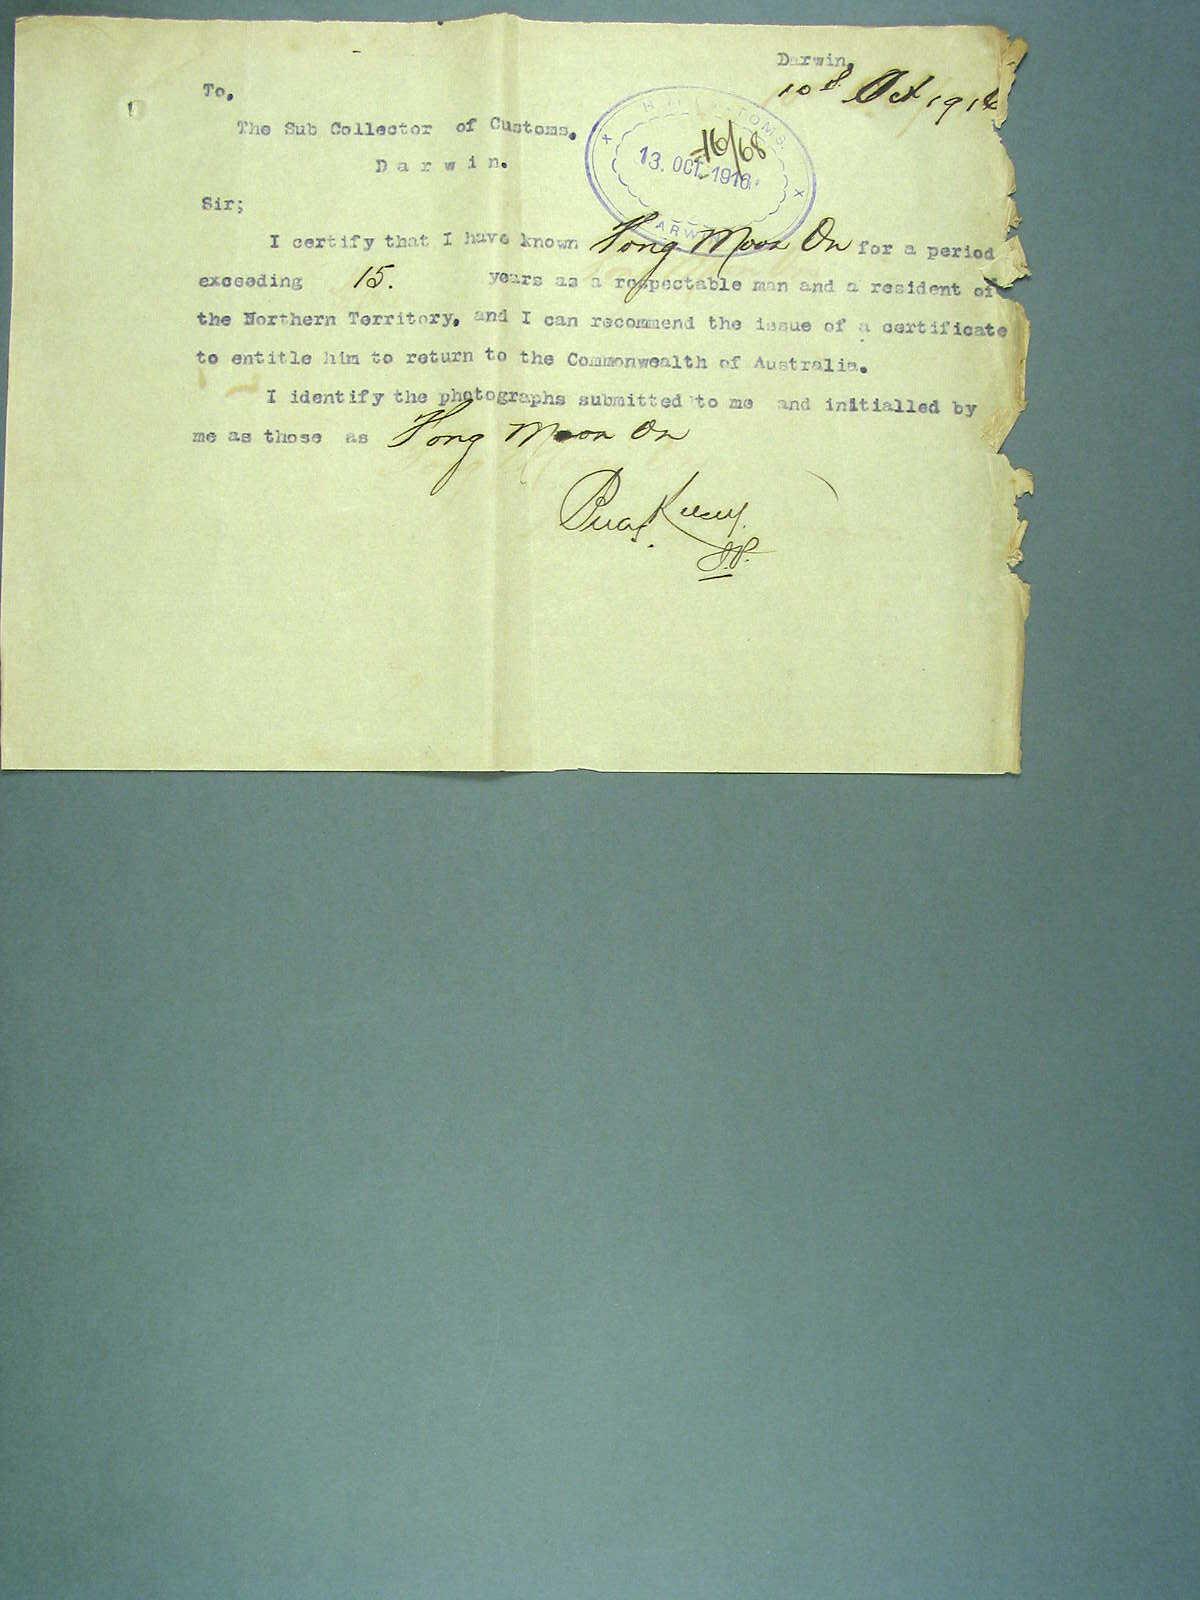 Darwin.
10th Oct 1916
To.
The Sub Collector of Customs.
Darwin.
CUSTOMS.
16/68
13. OCT. 1916
DARWIN
Sir;
I certify that I have known Fong Moon On for a period
exceeding 15. years as a respectable man and a resident of
the Northern Territory. and I can recommend the issue of a certificate
to entitle him to return to the Commonwealth of Australia.
I identify the photographs submitted to me and initialled by
me as those as Fong Moon On
J.P.